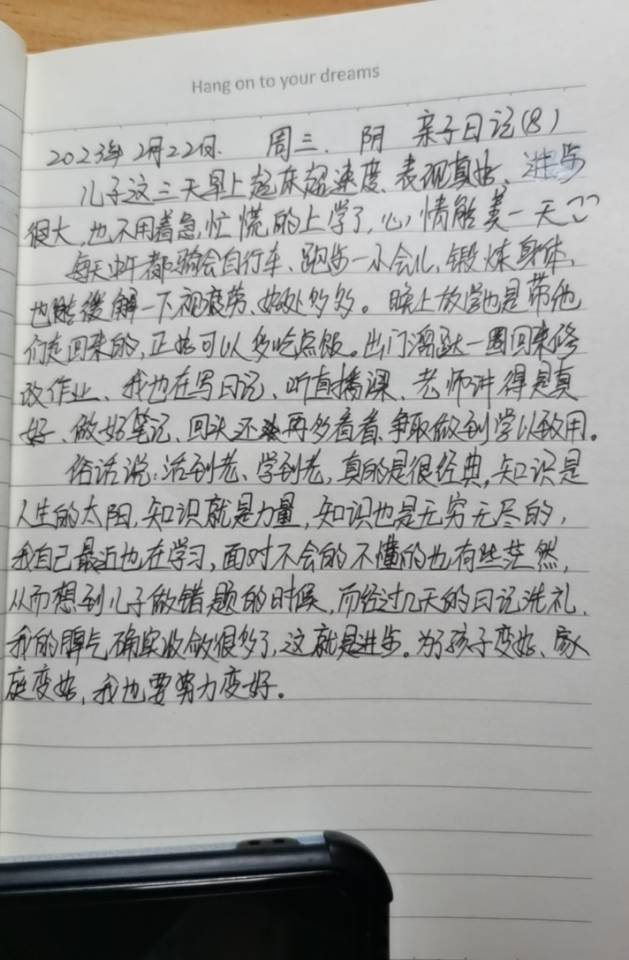 Hang on to your dreams
2023年2月22日. 周三. 阴 亲子日记(8)
儿子这三天早上起床超速度、表现真好、进步
很大,也不用着急,忙慌的上学了,心情能美一天
每天中午都骑会自行车、跑步一小会儿,锻炼身体,
也能缓解一下视疲劳、好处多多。晚上放学也是带他
们走回来的,正好可以多吃点饭。出门溜达一圈回来修
改作业、我也在写日记、听直播课、老师讲得是真
好、做好笔记、回头还再多看看、争取做到学以致用。
俗话说:活到老、学到老,真的是很经典,知识是
人生的太阳,知识就是力量,知识也是无穷无尽的,
我自己最近也在学习,面对不会的不懂的也有些茫然,
从而想到儿子做错题的时候,而经过几天的日记洗礼,
我的脾气确实收敛很多了,这就是进步。为了孩子变好、家
庭变好,我也要努力变好。